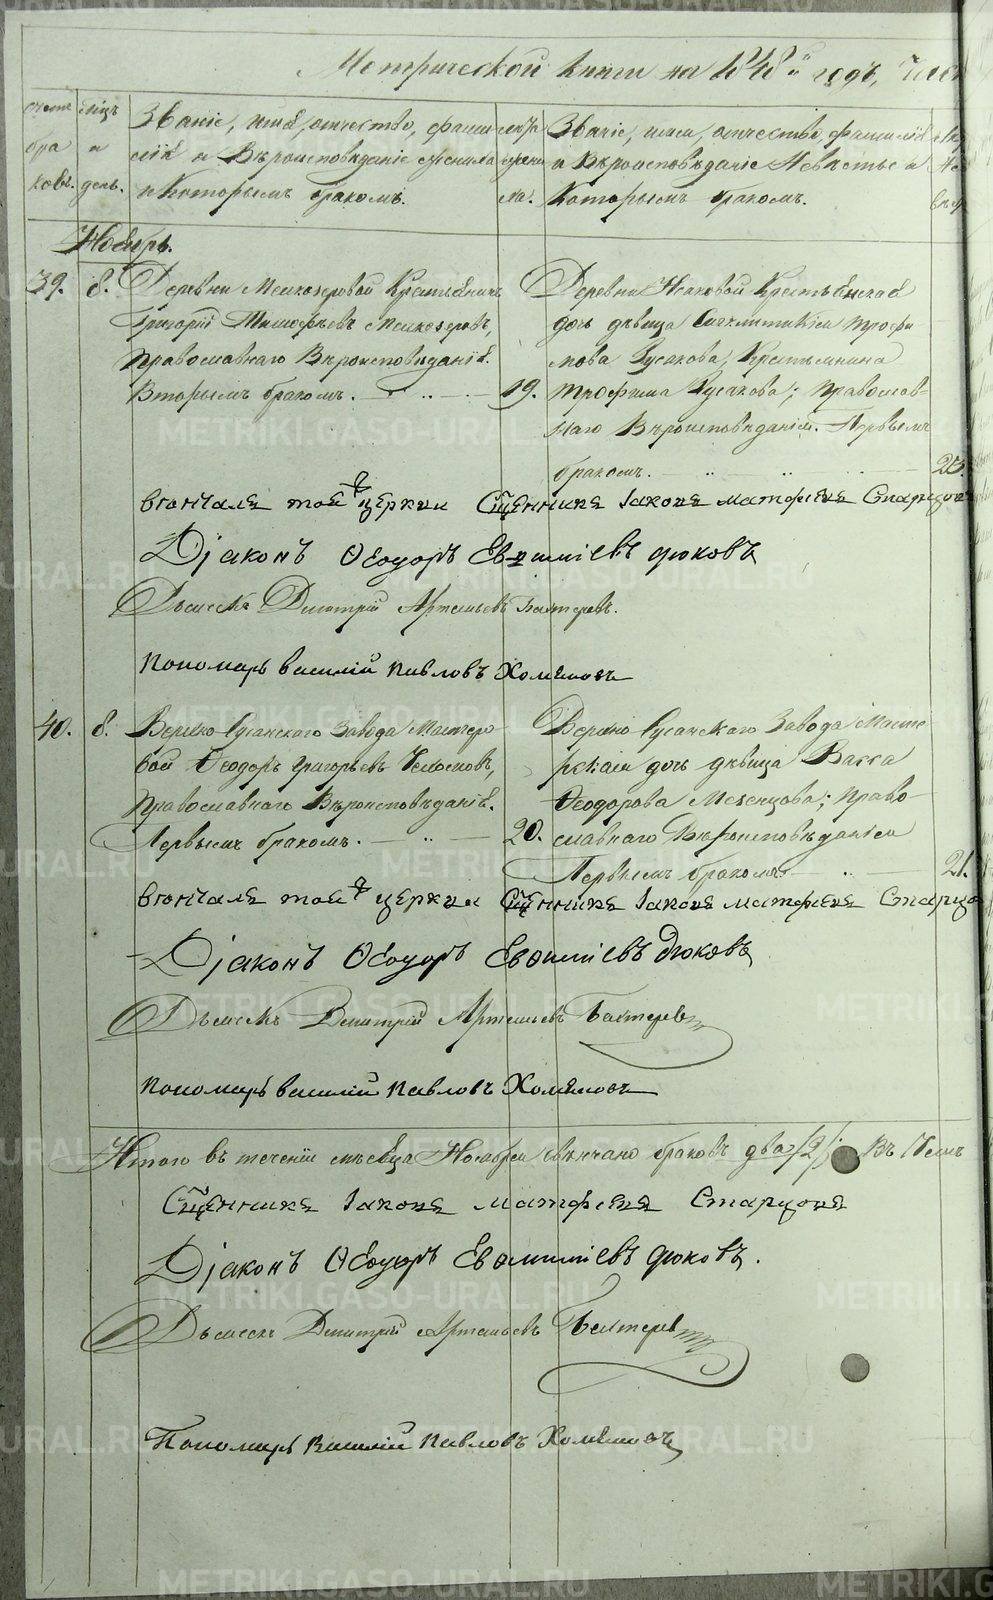 Метрической книги на 1848й годъ, Част
счетъ браковъ.
мѣсяцъ и день.
Званіе, имя, отчество, фами-
лія и Вѣроисповѣданіе жениха
и Которымъ бракомъ.
лѣта жениха.
Званіе, имя, отчество, фамилія
и Вѣроисповѣданіе Невѣсты и
Которымъ бракомъ.
Ноябрь.
39. 8. Деревни Мелкозеровой Крестьянинъ
Григорій Тимофѣевъ Мелкозеровъ,
Православнаго Вѣроисповѣданія.
Вторымъ бракомъ. 19.
Деревни Исаковой Крестьянская
дочь дѣвица Сигклитикія Трофи-
мова Русакова, Крестьянина
Трофима Русакова; Православ-
наго Вѣроисповѣданія. Первымъ
бракомъ.
венчале тоя церкви Сщенникъ Іаковъ Матфѣевъ Старцовъ
Діаконъ Ѳеодоръ Евѳиміевъ Дюковъ
Дьячекъ Дмитрій Артемьевъ Бахтеревъ.
Пономарь Василій Павловъ Хомяковъ
40. 8. Верхно Сусанскаго Завода Мастеро-
вой Ѳеодоръ Григорьевъ
Православнаго Вѣроисповѣданія.
Первымъ бракомъ. 20.
Верхно Сусанскаго Завода Масте-
рская дочь дѣвица Васса
Ѳеодорова Мезенцова; Право-
славнаго Вѣроисповѣданія
Первымъ бракомъ 21.
венчале тоя церкви Сщенникъ Іаковъ Матфѣевъ Старцо
Діаконъ Ѳеодоръ Евѳиміевъ Дюковъ
Дьячекъ Дмитрій Артемьевъ Бахтеревъ
Пономарь Василій Павловъ Хомяковъ
Итого въ теченіи мѣсяца Ноября вѣнчано браковъ два /2/; Въ
Сщенникъ Іаковъ Матфѣевъ Старцовъ
Діаконъ Ѳеодоръ Евѳиміевъ Дюковъ.
Дьячекъ Дмитрій Артемьевъ Бахтеревъ
Пономарь Василій Павловъ Хомяковъ
METRIKI.GASO-URAL.RU